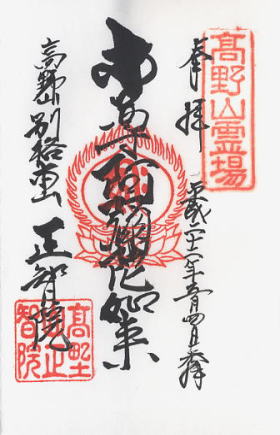 髙野山靈場
奉拝
平成二十八年五月四日拝
南無阿弥陀如来
高野山別格本山
正智院
髙野山正智院